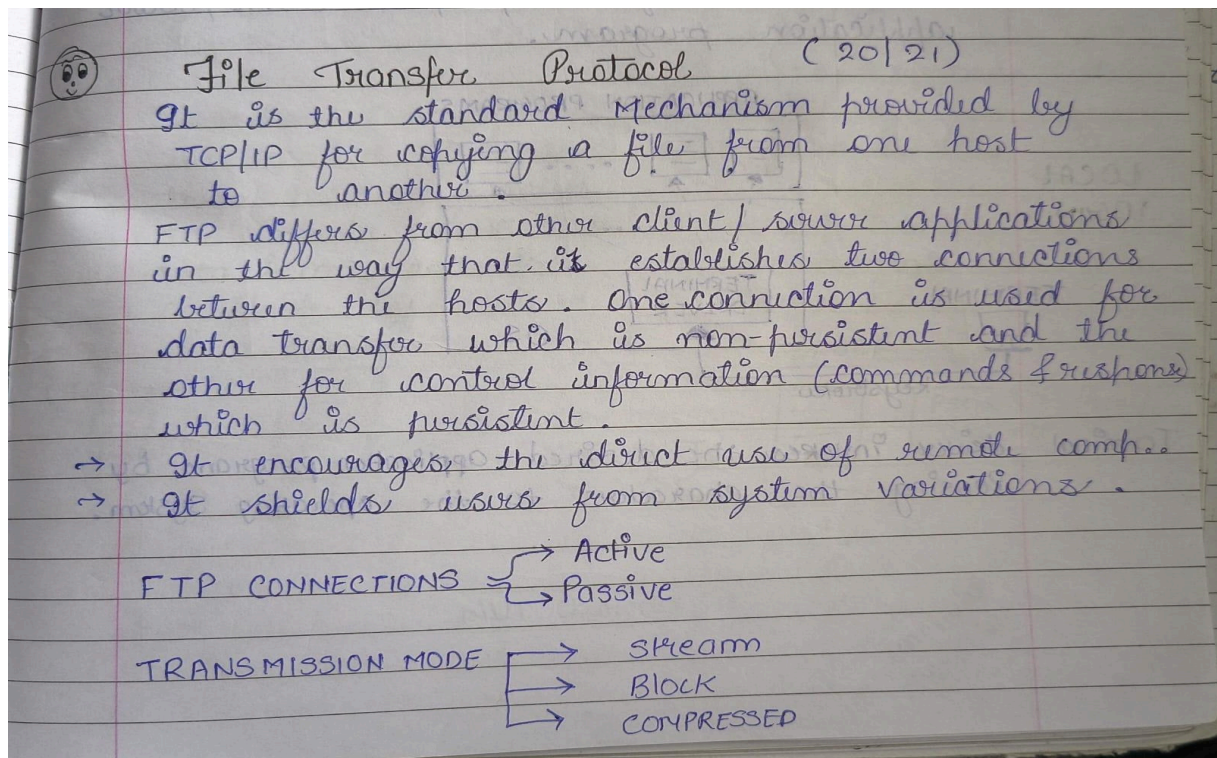 File Transfer Protocol (20/21)
It is the standard Mechanism provided by
TCP/IP for copying a file from one host
to another.
FTP differs from other client/server applications
in the way that it establishes two connections
between the hosts. One connection is used for
data transfer which is non-persistent and the
other for control information (commands & respons)
which is persistent.
→ It encourages the direct use of remote comp..
→ It shields users from system variations.
FTP CONNECTIONS → Active
→ Passive
TRANSMISSION MODE → Stream
→ BLOCK
→ COMPRESSED